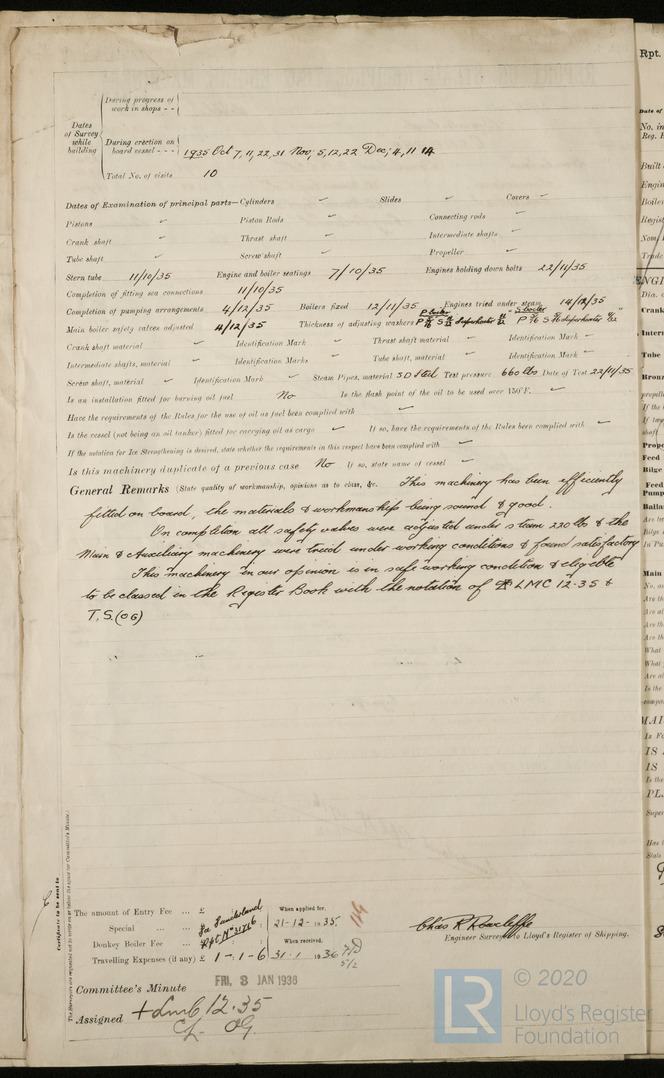 During progress of
work in shops - -
Dates
of Survey
while
building
During erection on
board vessel - - -
1935 Oct 7, 11, 22, 31 Nov; 5, 12, 22 Dec; 4, 11 14
Total No. of visits 10
Dates of Examination of principal parts—Cylinders ✓ Slides ✓ Covers ✓
Pistons ✓ Piston Rods ✓ Connecting rods ✓
Crank shaft ✓ Thrust shaft ✓ Intermediate shafts ✓
Tube shaft ✓ Screw shaft ✓ Propeller ✓
Stern tube 11/10/35 Engine and boiler seatings 7/10/35 Engines holding down bolts 22/11/35
Completion of fitting sea connections 11/10/35
Completion of pumping arrangements 4/12/35 Boilers fixed 12/11/35 Engines tried under steam 14/12/35
Main boiler safety valves adjusted 4/12/35 Thickness of adjusting washers P boiler S boiler
Crank shaft material ✓ Identification Mark ✓ Thrust shaft material ✓ Identification Mark ✓
Intermediate shafts, material ✓ Identification Marks ✓ Tube shaft, material ✓ Identification Mark ✓
Screw shaft, material ✓ Identification Mark ✓ Steam Pipes, material S D Steel Test pressure 660 lbs Date of Test 22/11/35
Is an installation fitted for burning oil fuel No Is the flash point of the oil to be used over 150°F. ✓
Have the requirements of the Rules for the use of oil as fuel been complied with ✓
Is the vessel (not being an oil tanker) fitted for carrying oil as cargo ✓ If so, have the requirements of the Rules been complied with ✓
If the notation for Ice Strengthening is desired, state whether the requirements in this respect have been complied with ✓
Is this machinery duplicate of a previous case No If so, state name of vessel ✓
General Remarks (State quality of workmanship, opinions as to class, &c. This machinery has been efficiently
fitted on board, the materials & workmanship being sound & good.
On completion all safety valves were adjusted under steam 220 lbs & the
Main & Auxiliary machinery were tried under working conditions & found satisfactory
This machinery in our opinion is in safe working condition & eligible
to be classed in the Register Book with the notation of ✠ LMC 12-35 &
T.S.(OG)
Certificate to be sent to
The Surveyors are requested not to write on or below the space for Committee's Minute.
The amount of Entry Fee ... £
Special ... ...
Donkey Boiler Fee ...
Travelling Expenses (if any) £ 1 - 1 - 6
See Sunderland
Rpt No 31766
When applied for,
21-12-1935.
When received,
31.1.1936
Chas R Rowcliffe
Engineer Surveyor to Lloyd's Register of Shipping.
Committee's Minute FRI. 3 JAN 1936
Assigned + Lmc 12.35
CL. OG.
© 2020
LR
Lloyd's Register
Foundation
Rpt.